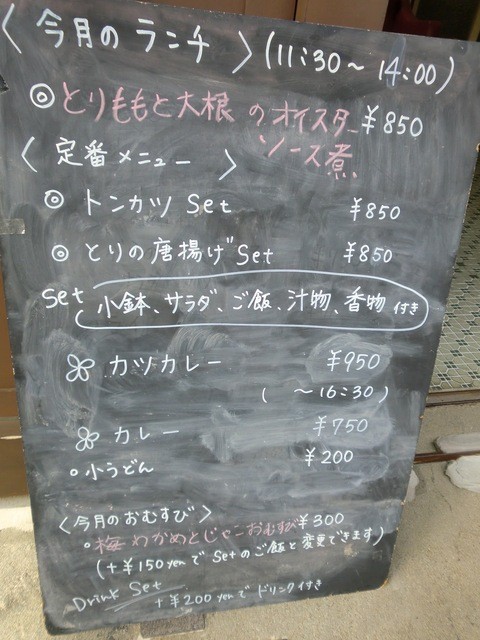 〈今月のランチ〉(11:30～14:00)
◎とりももと大根のオイスターソース煮 ¥850
〈定番メニュー〉
◎トンカツ Set ¥850
◎とりの唐揚げ Set ¥850
Set 小鉢、サラダ、ご飯、汁物、香物 付き
カツカレー ¥950
(～16:30)
カレー ¥750
○小うどん ¥200
〈今月のおむすび〉
○梅わかめとじゃこおむすび ¥300
(+¥150yenでSetのご飯と変更できます)
Drink Set
+¥200yenでドリンク付き